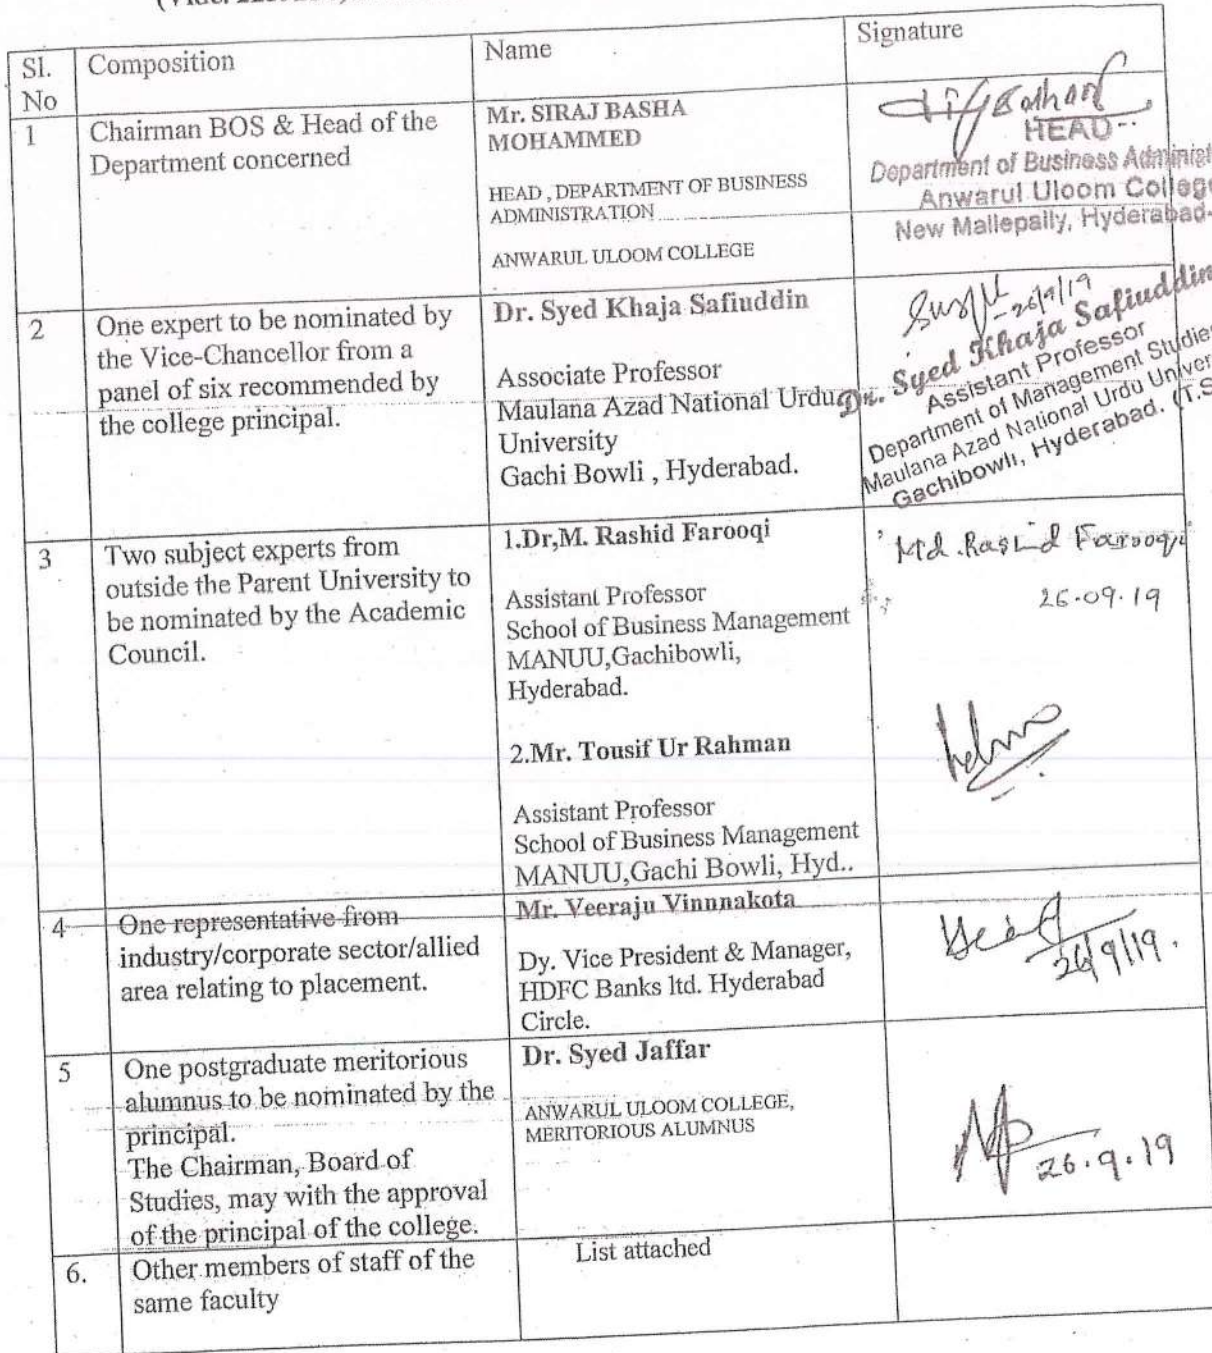 Sl.
No
Composition
Name
Signature
1
Chairman BOS & Head of the
Department concerned
Mr. SIRAJ BASHA
MOHAMMED
HEAD , DEPARTMENT OF BUSINESS
ADMINISTRATION
ANWARUL ULOOM COLLEGE
HEAD
Department of Business Administ
Anwarul Uloom College
New Mallepally, Hyderabad-
2
One expert to be nominated by
the Vice-Chancellor from a
panel of six recommended by
the college principal.
Dr. Syed Khaja Safiuddin
Associate Professor
Maulana Azad National Urdu
University
Gachi Bowli , Hyderabad.
26/9/19
Dr. Syed Khaja Safiuddin
Assistant Professor
Department of Management Studies
Maulana Azad National Urdu Univer
Gachibowli, Hyderabad. (T.S
3
Two subject experts from
outside the Parent University to
be nominated by the Academic
Council.
1.Dr,M. Rashid Farooqi
Assistant Professor
School of Business Management
MANUU,Gachibowli,
Hyderabad.
Md. Rashid Farooqi
26.09.19
2.Mr. Tousif Ur Rahman
Assistant Professor
School of Business Management
MANUU,Gachi Bowli, Hyd..
4
One representative from
industry/corporate sector/allied
area relating to placement.
Mr. Veeraju Vinnnakota
Dy. Vice President & Manager,
HDFC Banks ltd. Hyderabad
Circle.
26/9/19.
5
One postgraduate meritorious
alumnus to be nominated by the
principal.
The Chairman, Board of
Studies, may with the approval
of the principal of the college.
Dr. Syed Jaffar
ANWARUL ULOOM COLLEGE,
MERITORIOUS ALUMNUS
26.9.19
6.
Other members of staff of the
same faculty
List attached